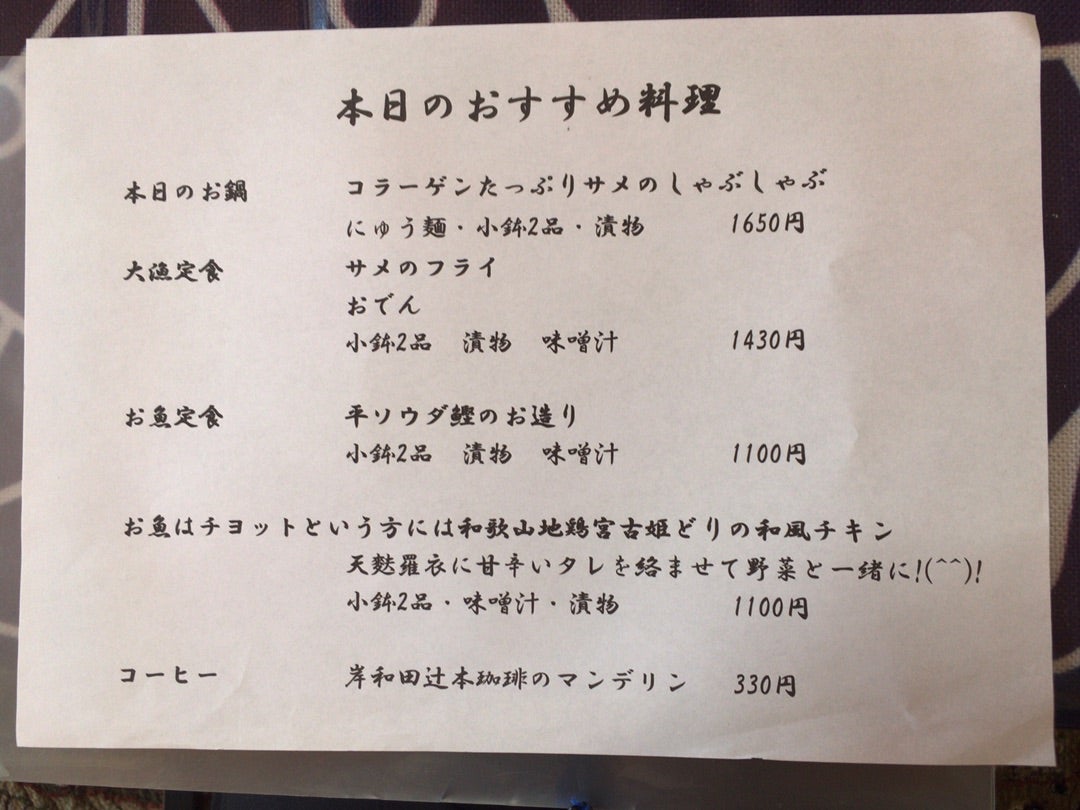 本日のおすすめ料理
本日のお鍋 コラーゲンたっぷりサメのしゃぶしゃぶ
にゅう麺・小鉢2品・漬物 1650円
大漁定食 サメのフライ
おでん
小鉢2品 漬物 味噌汁 1430円
お魚定食 平ソウダ鰹のお造り
小鉢2品 漬物 味噌汁 1100円
お魚はチョットという方には和歌山地鶏宮古姫どりの和風チキン
天麩羅衣に甘辛いタレを絡ませて野菜と一緒に!(^^)!
小鉢2品・味噌汁・漬物 1100円
コーヒー 岸和田辻本珈琲のマンデリン 330円